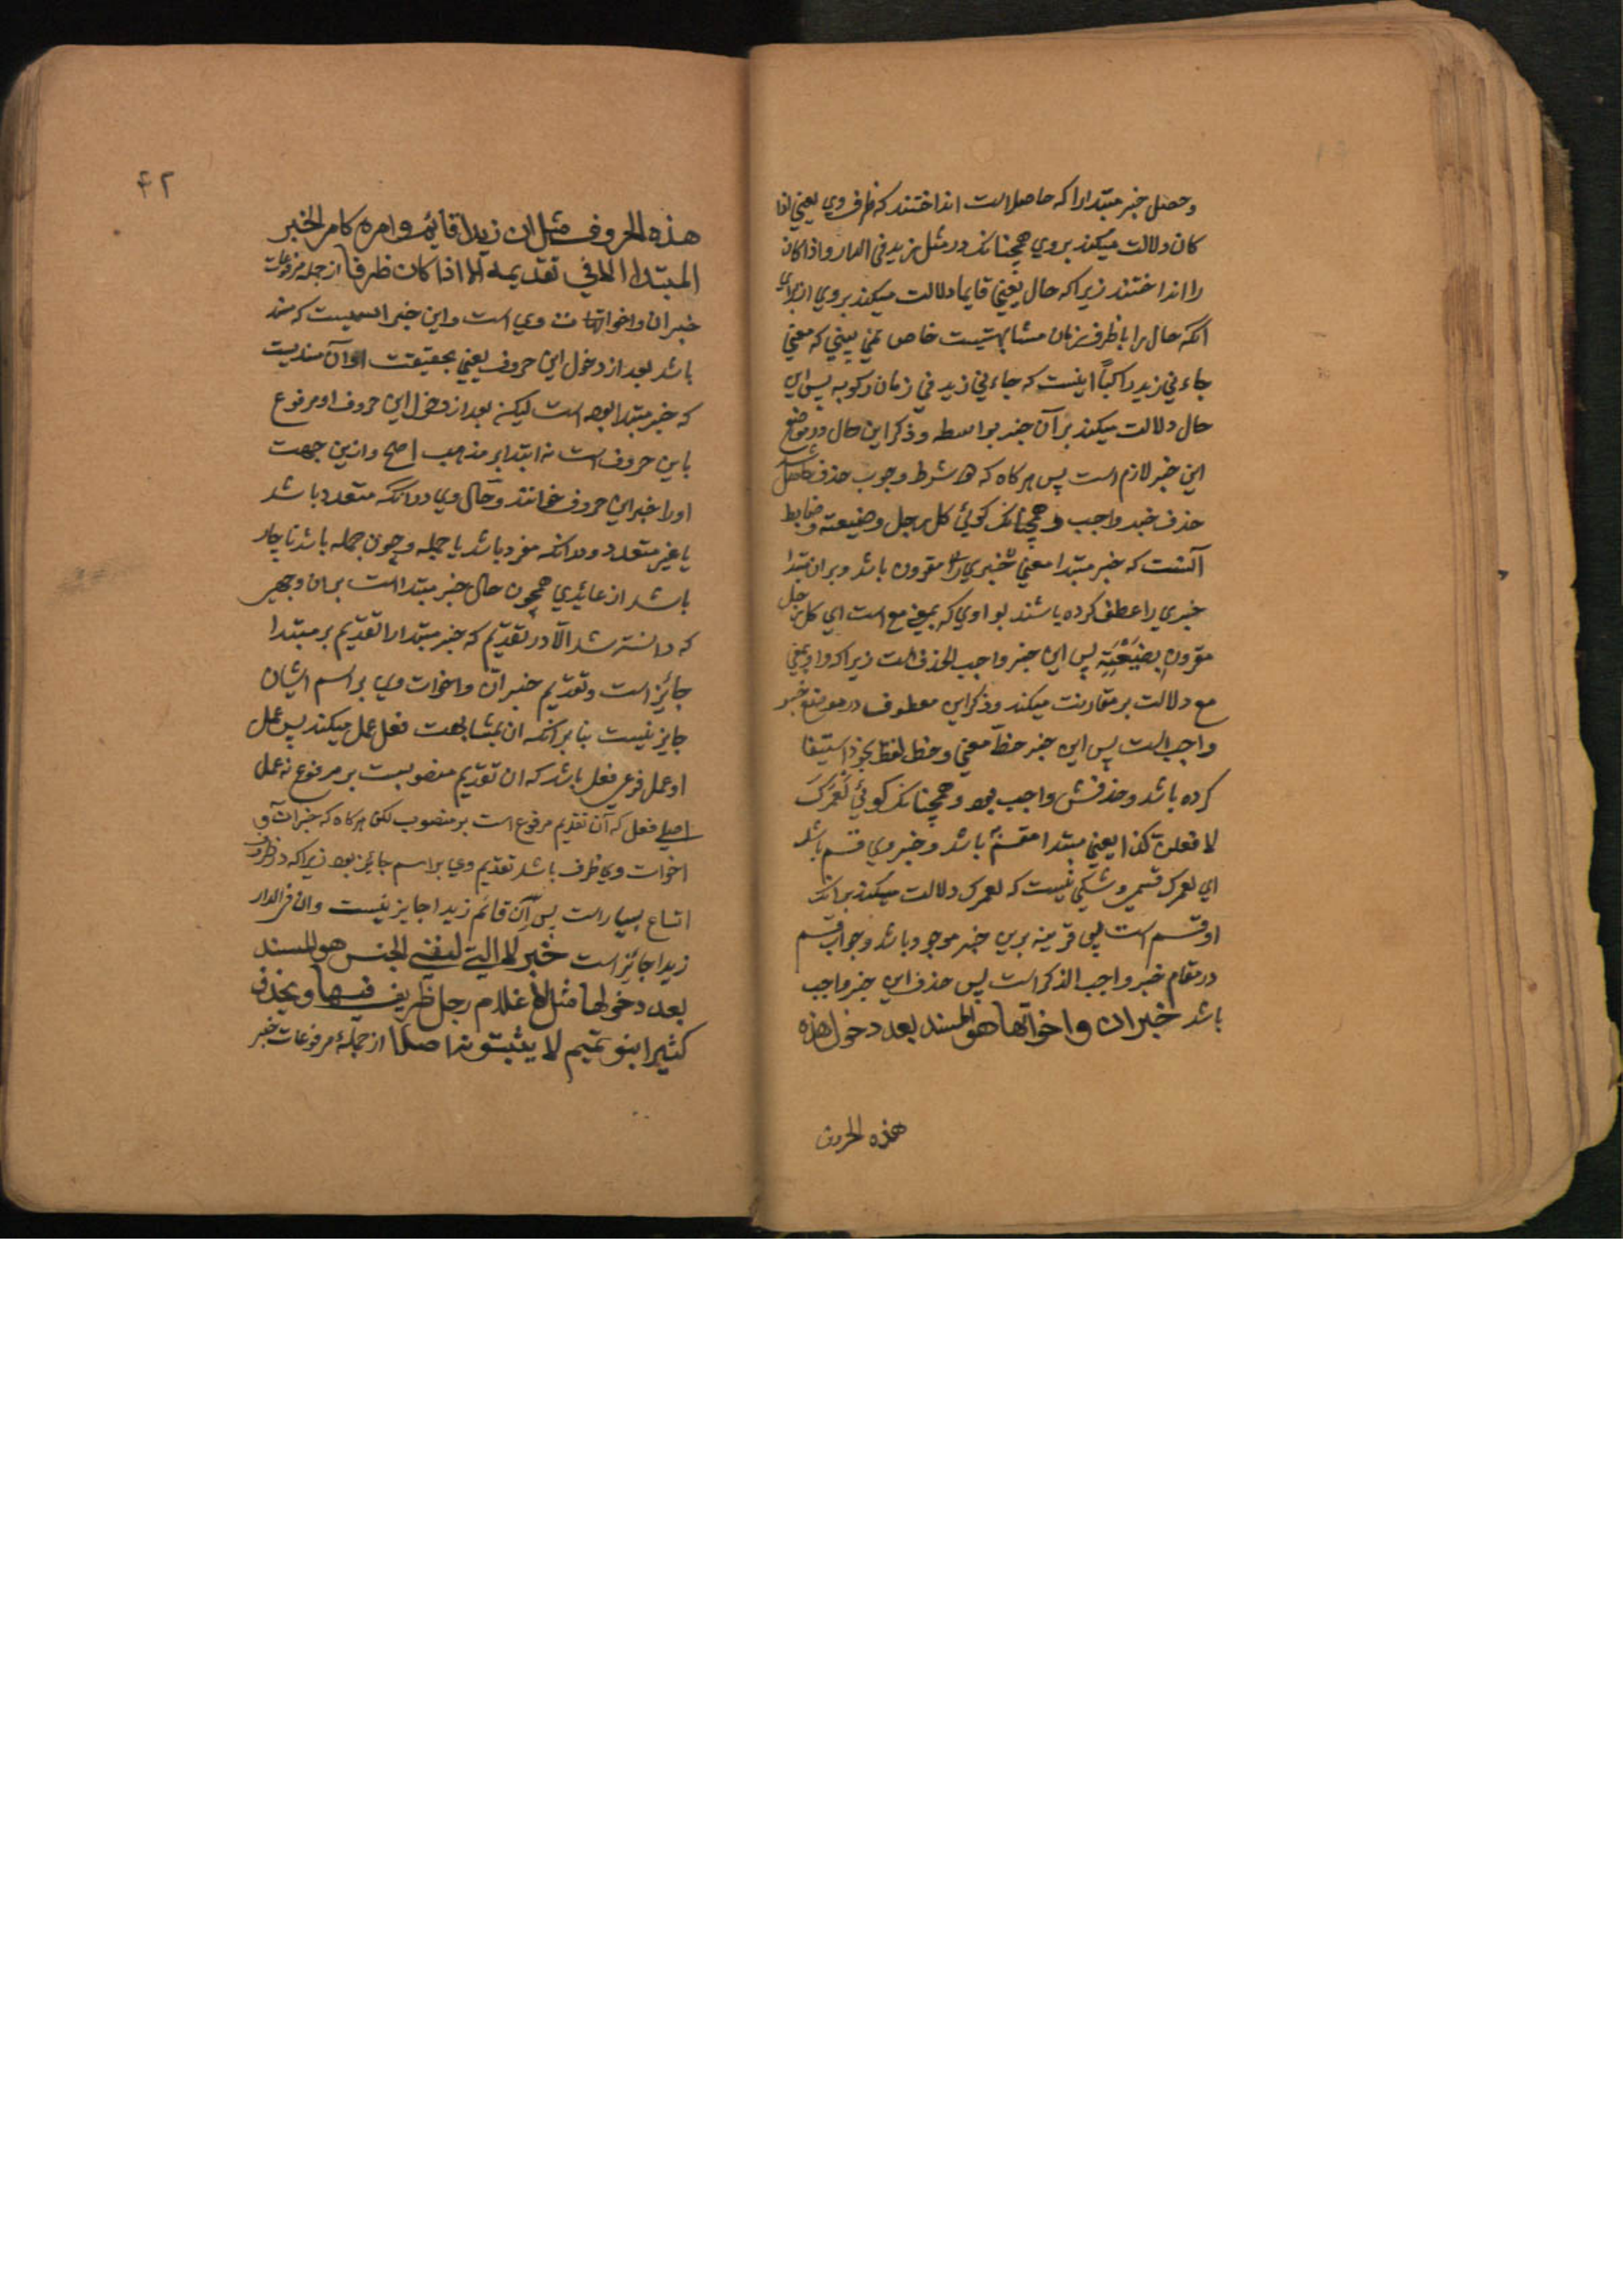 وحصل خبر مبتدا را که حاصل است انداختند که ظرف وی یعنی اذا
کان دلالت میکند بروی همچنانکه در مثل زید فی الدار و اذا کان
را انداختند زیرا که حال یعنی قایما دلالت میکند بروی از برای
آنکه حال را با ظرف زمان مشابهتیست خاص نمی بینی که معنی
جاءنی زید راکبا اینست که جاءنی زید فی زمان رکوبه پس این
حال دلالت میکند بر آن خبر بواسطه و ذکر این حال در موضع
این خبر لازم است پس هرگاه که شرط وجوب حذف حاصل شد
حذف خبر واجب و همچنانکه گوئی کل رجل وضیعته و ضابط
آنست که خبر مبتدا معنی مقرون باشد و بران مبتدا
خبری را عطف کرده باشند بواوی که بمعنی مع است ای کل رجل
مقرون بضیعته پس این خبر واجب الحذف است زیرا که واو بمعنی
مع دلالت بر مقارنت میکند و ذکر این معطوف در موضع خبر
واجب است پس این خبر حظ معنی و حظ لفظ بخود استیفا
کرده باشد و حذفش واجب بود و همچنانکه گوئی لعمرک
لا فعلن کذا یعنی مبتدا مقسم باشد و خبر وی قسم باشد
ای لعمرک قسمی و شکی نیست که لعمرک دلالت میکند برانکه
او قسم است پس قرینه برین خبر موجود باشد و جواب قسم
در مقام خبر واجب الذکر است پس حذف این خبر واجب
باشد خبر ان و اخواتها هو المسند بعد دخول هذه
هذه الحروف
۴۲
هذه الحروف مثل ان زیدا قائم و امره کامر الخبر
المبتدا الا فی تقدیمه الا اذا کان ظرفا از جمله مرفوعات
خبر ان واخواتها وی است و این خبر اسمیست که مسند
باشد بعد از دخول این حروف یعنی بحقیقت او آن مسندیست
که خبر مبتدا بوده است لیکن بعد از دخول این حروف او مرفوع
باین حروف است نه ابتدا بر مذهب اصح و ازین جهت
او را خبر این حروف خوانند و حال وی در آنکه متعدد باشد
یا غیر متعدد و در آنکه مفرد باشد یا جمله و چون جمله باشد ناچار
باشد از عائدی همچون حال خبر مبتدا است بران وجهی
که دانسته شد الا در تقدیم که خبر مبتدا را تقدیم بر مبتدا
جائز است و تقدیم خبر ان و اخوات وی بر اسم ایشان
جایز نیست بنا بر آنکه ان بمشابهت فعل عمل میکند پس عمل
او عمل فرعی فعل باشد که ان تقدیم منصوبست بر مرفوع نه عمل
اصلی فعل که آن تقدیم مرفوع است بر منصوب لکن هرگاه که خبر ان و
اخوات وی ظرف باشد تقدیم وی بر اسم جائز بود زیرا که در ظروف
اتساع بسیار است پس ان قائم زیدا جایز نیست و ان فی الدار
زیدا جائز است خبر لا التی لنفی الجنس هو المسند
بعد دخولها مثل لا غلام رجل ظریف فیها و یحذف
کثیرا و بنو تمیم لا یثبتونه اصلا از جمله مرفوعات خبر